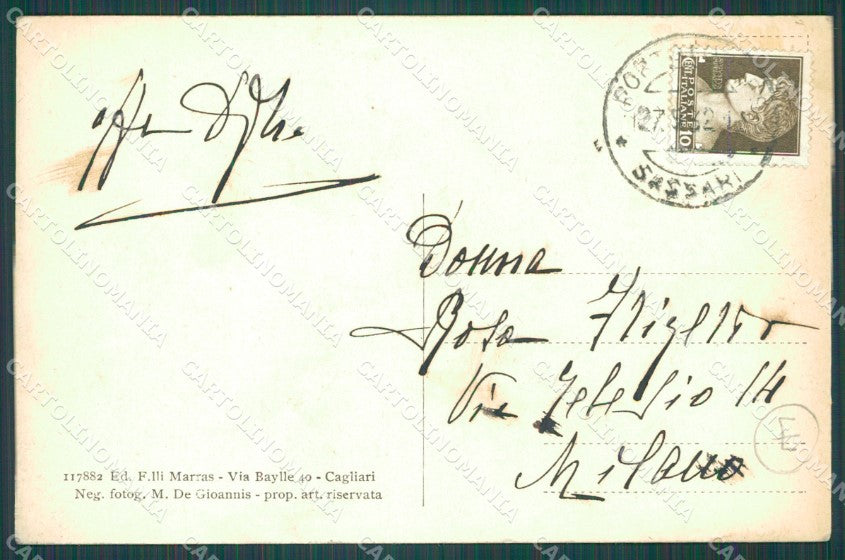 POSTE
ITALIANE
10
SASSARI
Donna
Rosa
Via Telesio 14
Milano
117882 Ed. F.lli Marras - Via Baylle 40 - Cagliari
Neg. fotog. M. De Gioannis - prop. art. riservata
CARTOLINOMANIA